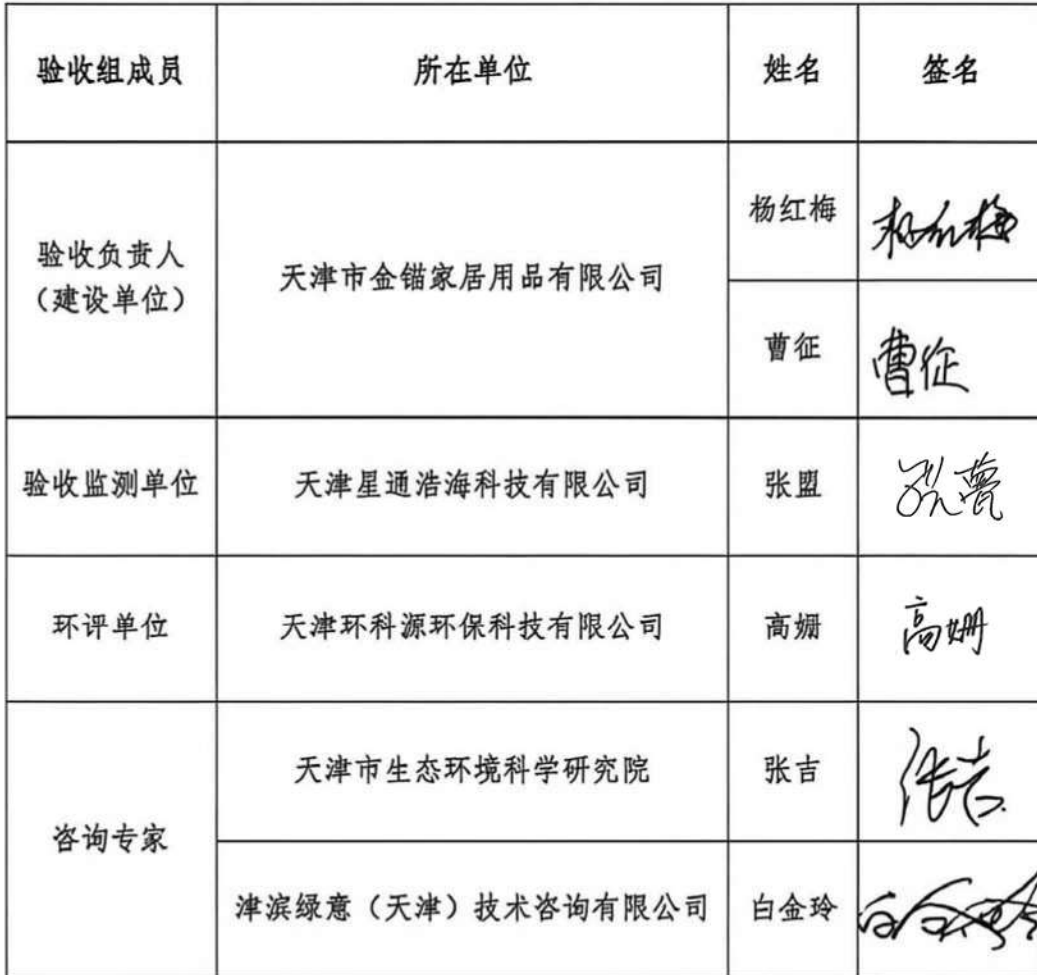 验收组成员 所在单位 姓名 签名
验收负责人
（建设单位）
天津市金锚家居用品有限公司
杨红梅 杨红梅
曹征 曹征
验收监测单位 天津星通浩海科技有限公司 张盟
环评单位 天津环科源环保科技有限公司 高姗 高姗
咨询专家
天津市生态环境科学研究院 张吉 张吉
津滨绿意（天津）技术咨询有限公司 白金玲 白金玲